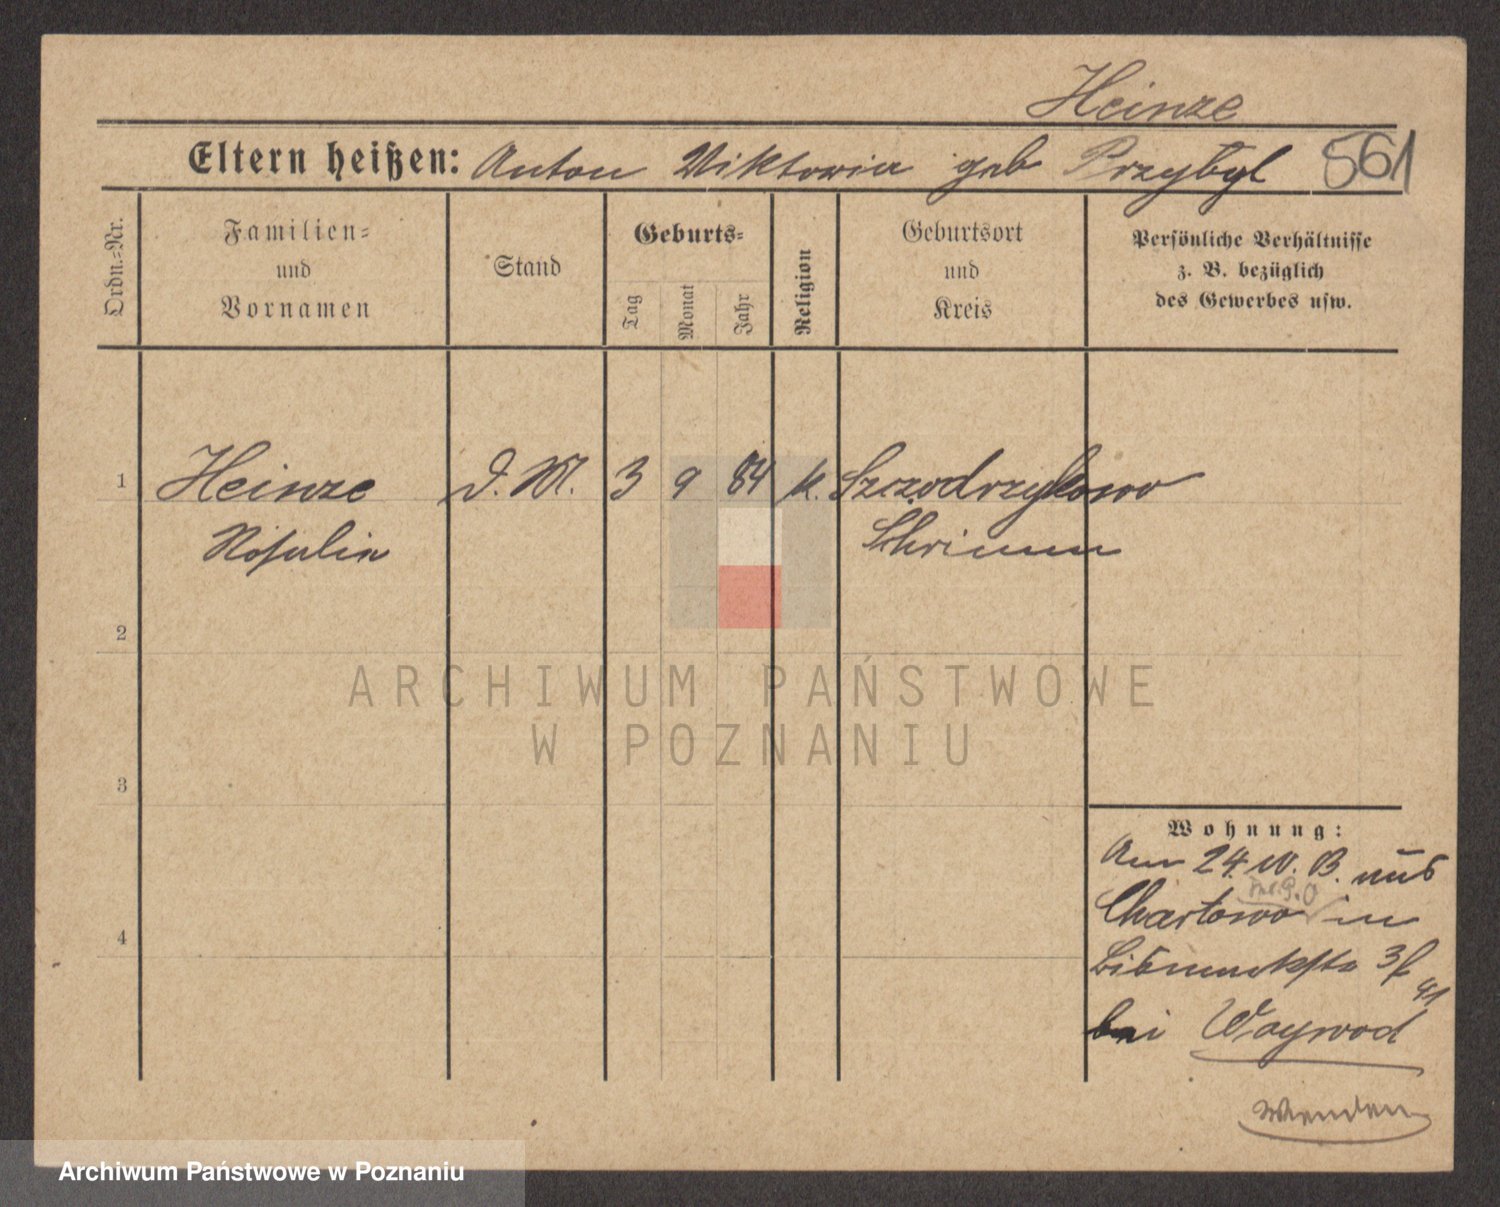 Heinze
Eltern heißen: Anton Viktoria geb Przybyl 561
Ordn.-Nr.
Familien-
und
Vornamen
Stand
Geburts-
Tag
Monat
Jahr
Religion
Geburtsort
und
Kreis
Persönliche Verhältnisse
z. B. bezüglich
des Gewerbes usw.
1 Heinze D. M. 3 9 84 k. Szczodrzykowo
Rosalia Schrimm
2
ARCHIWUM PAŃSTWOWE
W POZNANIU
3
Wohnung:
Am 24. 10. 13. aus
Chartowo in
4
Bismarckstr 3
41
bei Woywod
Wenden
Archiwum Państwowe w Poznaniu